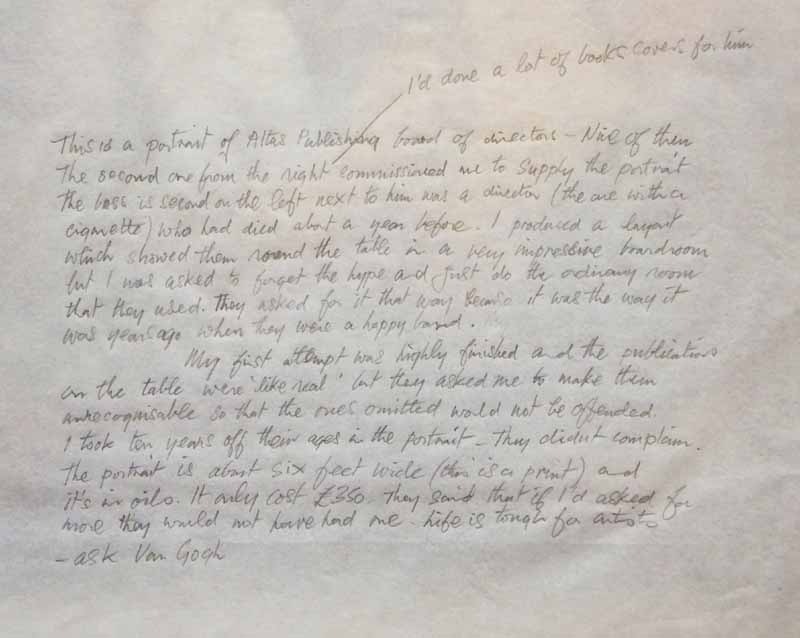 I'd done a lot of books covers for him
This is a portrait of Altas Publishing board of directors – Nine of them
The second one from the right commissioned me to supply the portrait
The boss is second on the left next to him was a director (the one with a
cigarette) who had died about a year before. I produced a layout
which showed them round the table in a very impressive boardroom
but I was asked to forget the hype and just do the ordinary room
that they used. They asked for it that way because it was the way it
was years ago when they were a happy band.
My first attempt was highly finished and the publications
on the table were 'like real' but they asked me to make them
unrecognisable so that the ones omitted would not be offended.
I took ten years off their ages in the portrait – They didn't complain.
The portrait is about six feet wide (this is a print) and
it's in oils. It only cost £350. They said that if I'd asked for
more they would not have had me. Life is tough for artists
– ask Van Gogh